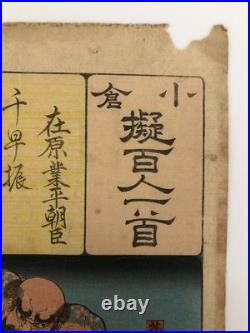 小倉
擬百人一首
在原業平朝臣
千早振